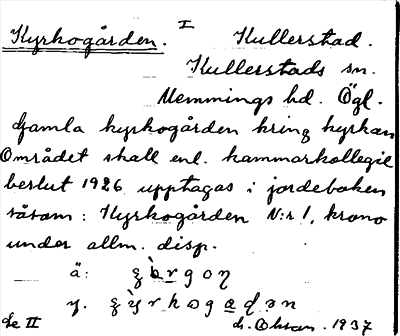 Kyrkogården. I Kullerstad.
Kullerstads sn.
Memmings hd. Ögl.
Gamla kyrkogården kring kyrkan
Området skall enl. kammarkollegii
beslut 1926 upptagas i jordeboken
såsom: Kyrkogården N:r 1, krono
under allm. disp.
ä:
y.
de II 1937